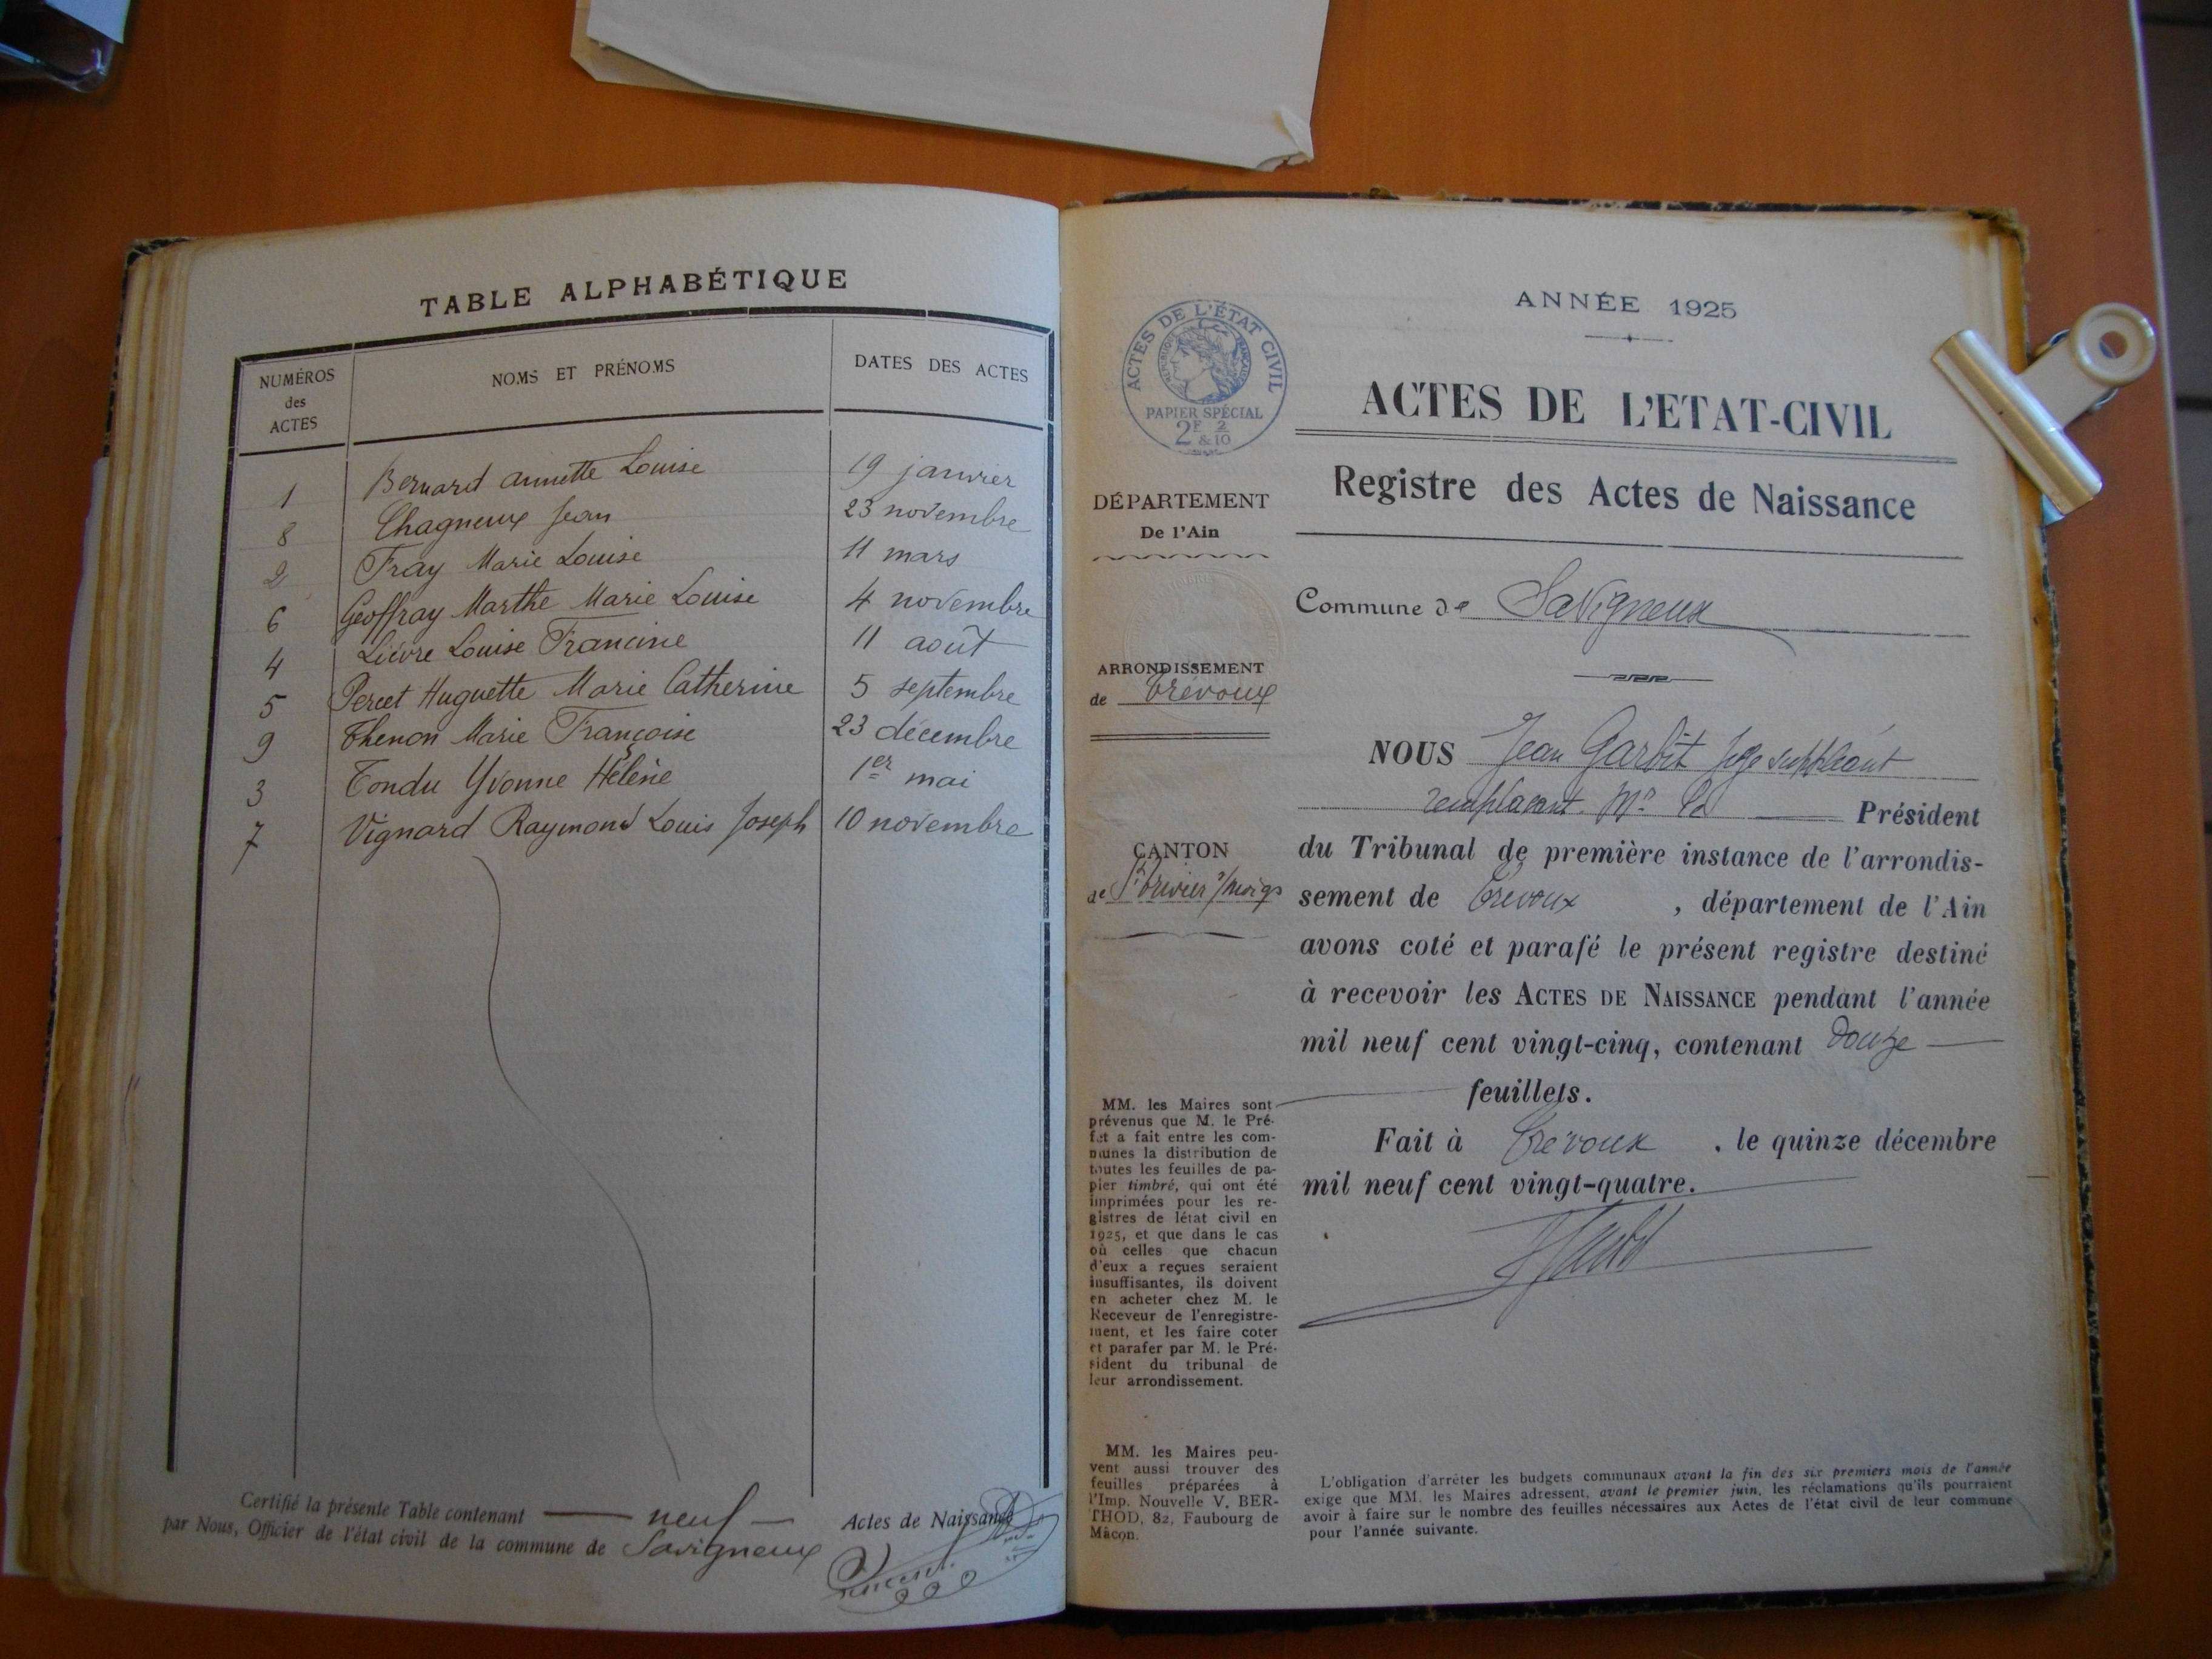 TABLE ALPHABÉTIQUE
NUMÉROS
des
ACTES
NOMS ET PRÉNOMS
DATES DES ACTES
1 Bernard Annette Louise 19 janvier
8 Chagneux Jean 23 novembre
2 Fray Marie Louise 11 mars
6 Geoffray Marthe Marie Louise 4 novembre
4 Lièvre Louise Francine 11 août
5 Percet Huguette Marie Catherine 5 septembre
9 Thenon Marie Françoise 23 décembre
3 Tondu Yvonne Hélène 1er mai
7 Vignard Raymond Louis Joseph 10 novembre
Certifié la présente Table contenant neuf Actes de Naissance
par Nous, Officier de l'état civil de la commune de Savigneux
ANNÉE 1925
ACTES DE L'ÉTAT CIVIL
RÉPUBLIQUE FRANÇAISE
PAPIER SPÉCIAL
2F 2
&10
ACTES DE L'ETAT-CIVIL
Registre des Actes de Naissance
DÉPARTEMENT
De l'Ain
Commune de Savigneux
ARRONDISSEMENT
de Trévoux
CANTON
de St Trivier s/Moigs
NOUS Jean Garbit Juge suppléant
remplaçant Mr le Président
du Tribunal de première instance de l'arrondis-
sement de Trévoux , département de l'Ain
avons coté et parafé le présent registre destiné
à recevoir les ACTES DE NAISSANCE pendant l'année
mil neuf cent vingt-cinq, contenant douze
feuillets.
Fait à Trévoux , le quinze décembre
mil neuf cent vingt-quatre.
MM. les Maires sont
prévenus que M. le Pré-
fet a fait entre les com-
munes la distribution de
toutes les feuilles de pa-
pier timbré, qui ont été
imprimées pour les re-
gistres de létat civil en
1925, et que dans le cas
où celles que chacun
d'eux a reçues seraient
insuffisantes, ils doivent
en acheter chez M. le
Receveur de l'enregistre-
ment, et les faire coter
et parafer par M. le Pré-
sident du tribunal de
leur arrondissement.
MM. les Maires peu-
vent aussi trouver des
feuilles préparées à
l'Imp. Nouvelle V. BER-
THOD, 82, Faubourg de
Mâcon.
L'obligation d'arrêter les budgets communaux avant la fin des six premiers mois de l'année
exige que MM. les Maires adressent, avant le premier juin, les réclamations qu'ils pourraient
avoir à faire sur le nombre des feuilles nécessaires aux Actes de l'état civil de leur commune
pour l'année suivante.